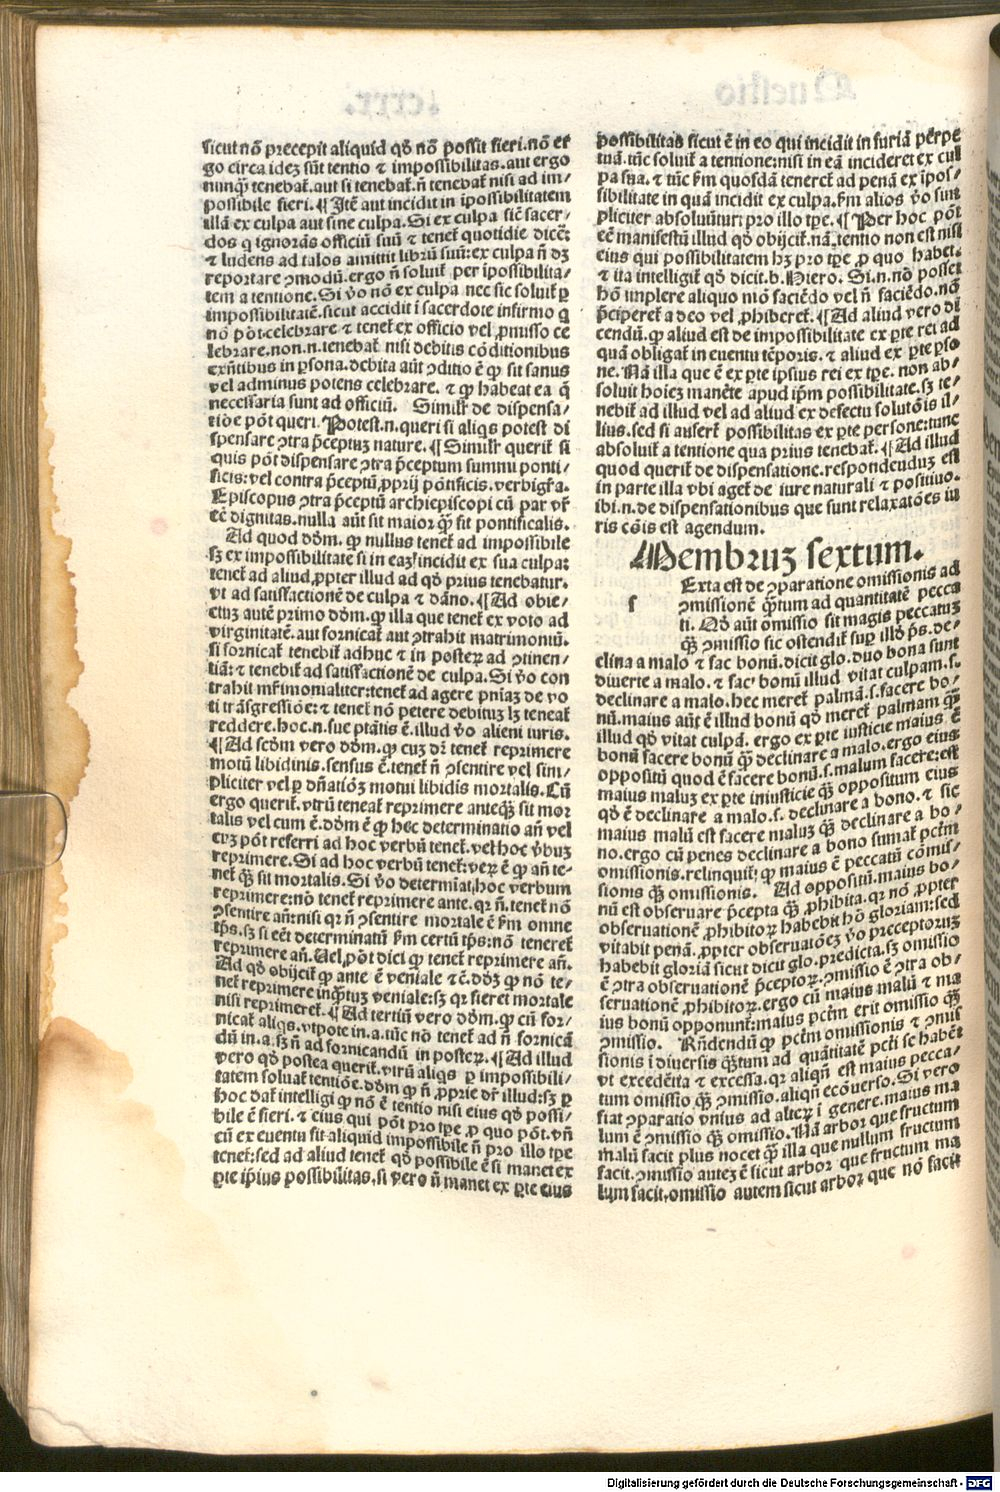 sicut nõ precepit aliquid qd̃ nõ possit fieri. nõ er
go circa idez sũt tentio ⁊ impossibilitas. aut ergo
nunq̃ tenebat̃. aut si tenebat̃. ñ tenebat̃ nisi ad im/
possibile fieri. ¶ Itẽ aut incidit in ĩpossibilitatem
illã ex culpa aut sine culpa. Si ex culpa sic̃ sacer/
dos q ignorãs officiũ suũ ⁊ tenet̃ quotidie dicẽ:
⁊ ludens ad talos amittit librũ suũ: ex culpa ñ dz
reportare ɔmodũ. ergo ñ soluit̃ per ĩpossibilita/
tem a tentione. Si ṽo nõ ex culpa nec sic soluit̃ ꝑ
impossibilitatẽ. sicut accidit ĩ sacerdote infirmo q
nõ põt celebrare ⁊ tenet̃ ex officio vel ꝓmisso ce
lebrare. non. n. tenebat̃ nisi debitis cõditionibus
exñtibus in ꝑsona. debita aũt ɔditio ẽ ꝙ sit sanus
vel adminus potens celebrare. ⁊ ꝙ habeat ea q̃
necessaria sunt ad officiũ. Simil̃r de dispensa/
tiõe põt queri. Potest. n. queri si aliqs potest di
spensare ɔtra p̃ceptuz nature. ¶ Simil̃r querit̃ si
quis põt dispensare ɔtra p̃ceptum summi ponti/
ficis: vel contra p̃ceptũ ꝓprij põtificis. verbi gr̃a.
Episcopus ɔtra p̃ceptũ archiepiscopi cũ par vr̃
eẽ dignitas. nulla aũt sit maior q̃ꝫ sit pontificalis.
Ad quod dõm. ꝙ nullus tenet̃ ad impossibile
sꝫ ex impossibilitate si in eaz incidit ex sua culpa:
tenet̃ ad aliud ꝓpter illud ad qd̃ prius tenebatur.
vt ad satisfactionẽ de culpa ⁊ dãno. ¶ Ad obie/
ctuz autẽ primo dõm. ꝙ illa que tenet̃ ex voto ad
virginitatẽ. aut fornicat̃ aut ɔtrahit matrimoniũ.
si fornicat̃ tenebit̃ adhuc ⁊ in posteꝝ ad ɔtinen/
tiã: ⁊ tenebit̃ ad satisfactionẽ de culpa. Si ṽo con
trahit mr̃imonialiter: tenet̃ ad agere pniaz de vo
ti trãsgressiõe: ⁊ tenet̃ nõ petere debituz lꝫ teneat̃
reddere. hoc. n. sue ptãtis ẽ. illud ṽo alieni iuris.
¶ Ad scd̃m vero dõm. ꝙ cuz dr̃ tenet̃ reprimere
motũ libidinis. sensus ẽ. tenet̃ ñ ɔsentire vel sim/
pliciter vel ꝑ dñatiõz motui libidis mortalis. Cũ
ergo querit̃. vtrũ teneat̃ reprimere anteq̃ꝫ sit mor
talis vel cum ẽ. dõm ẽ ꝙ hec determinatio añ vel
cuz põt referri ad hoc verbũ tenet̃. vel hoc ṽbuz
reprimere. Si ad hoc verbũ tenet̃: veꝝ ẽ ꝙ añ te/
net̃ q̃ꝫ sit mortalis. Si ṽo determiat̃ hoc verbum
reprimere: nõ tenet̃ reprimere ante. qr ñ. tenet̃ nõ
ɔsentire añ: nisi qr ñ ɔsentire mortale ẽ s̃m omne
tp̃s. sꝫ si eẽt determinatũ s̃m certũ tp̃s: nõ teneret̃
reprimere añ. Uel põt dici ꝙ tenet̃ reprimere añ.
Ad qd̃ obijcit̃ ꝙ ante ẽ veniale ⁊c̃. dõz ꝙ nõ te/
net̃ reprimere inq̃ꝫtuz veniale: sꝫ qr fieret mortale
nisi reprimeret̃. ¶ Ad tertiũ vero dõm. ꝙ cũ for/
nicat̃ aliqs. vtpote in. a. tũc nõ tenet̃ ad ñ fornicã
dũ in. a. sꝫ ñ ad fornicandũ in posteꝝ. ¶ Ad illud
vero qd̃ postea querit̃. vtrũ aliqs ꝑ impossibili/
tatem soluat̃ tentiõe. dõm ꝙ ñ ꝓprie dr̃ illud: sꝫ ꝑ
hoc dat̃ intelligi ꝙ nõ ẽ tentio nisi eius qd̃ possi/
bile ẽ fieri. ⁊ eius qui põt pro tꝑe ꝓ quo põt. vñ
cũ ex euentu sit aliquid impossibile ñ pro illo tꝑe
tenet̃: sed ad aliud tenet̃ qd̃ possibile ẽ si manet ex
ꝑte ip̃ius possibilitas. si vero ñ manet ex ꝑte eius
possibilitas sicut ẽ in eo qui incidit in furiã perpe
tuã. tũc soluit̃ a tentione: nisi in eã incideret ex cul
pa sua. ⁊ tũc s̃m quosdã teneret̃ ad penã ex ĩpos/
sibilitate in quã incidit ex culpa. s̃m alios ṽo sim
pliciter absoluũtur: pro illo tꝑe. ¶ Per hoc põt
eẽ manifestũ illud qd̃ obijcit̃. nã tentio non est nisi
eius qui possibilitatem hꝫ pro tꝑe ꝓ quo habet̃.
⁊ ita intelligit̃ qd̃ dicit. b. Hiero. Si. n. nõ posset
hõ implere aliquo mõ faciẽdo vel ñ faciẽdo. nõ
p̃ciperet̃ a deo vel ꝓhiberet̃. ¶ Ad aliud vero di
cendũ. ꝙ aliud est de impossibilitate ex ꝑte rei ad
quã obligat̃ in euentu tẽporis. ⁊ aliud ex ꝑte ꝑso
ne. Nã illa que ẽ ex ꝑte ipsius rei ex tꝑe. non ab/
soluit hoiez manẽte apud ip̃m possibilitate. sꝫ te/
nebit̃ ad illud vel ad aliud ex defectu solutõis il/
lius. sed si aufert̃ possibilitas ex ꝑte persone: tunc
absoluit̃ a tentione qua prius tenebat̃. ¶ Ad illud
quod querit̃ de dispensatione. respondenduz est
in parte illa vbi aget̃ de iure naturali ⁊ positiuo.
ibi. n. de dispensationibus que sunt relaxatões iu
ris cõis est agendum.
Membruz sextum.
Exta est de ɔparatione omissionis ad
s
ɔmissionẽ q̃ꝫtum ad quantitatẽ pecca
ti. Qd̃ aũt omissio sit magis peccatuz
q̃ꝫ ɔmissio sic ostendit̃ suꝑ illd̃ p̃s. de/
clina a malo ⁊ fac bonũ. dicit glo. duo bona sunt
diuerte a malo. ⁊ fac bonũ illud vitat culpam. s.
declinare a malo. hec meret̃ palmã. s. facere bo/
nũ. maius aũt ẽ illud bonũ qd̃ meret̃ palmam q̃ꝫ
illud qd̃ vitat culpã. ergo ex ꝑte iusticie maius ẽ
bonũ facere bonũ q̃ꝫ declinare a malo. ergo eius
oppositũ quod ẽ facere bonũ. s. malum facere: est
maius maluz ex ꝑte iniusticie q̃ꝫ oppositum eius
qd̃ ẽ declinare a malo. s. declinare a bono. ⁊ sic
maius malũ est facere maluz q̃ꝫ declinare a bo/
no. ergo cũ penes declinare a bono sumat̃ pctm̃
omissionis. relinquit̃: ꝙ maius ẽ peccatũ cõmis/
sionis q̃ꝫ omissionis. Ad oppositũ. maius bo/
nũ est obseruare p̃cepta q̃ꝫ ꝓhibita. qr nõ ꝓpter
obseruationẽ ꝓhibitoꝝ habebit hõ gloriam: sed
vitabit penã. ꝓpter obseruatõez ṽo preceptoruz
habebit gloriã sicut dicit glo. predicta. sꝫ omissio
ẽ ɔtra obseruationẽ p̃ceptoꝝ. ɔmissio ẽ ɔtra ob/
seruationẽ ꝓhibitoꝝ. ergo cũ maius malũ ⁊ ma
ius bonũ opponunt̃: maius pctm̃ erit omissio q̃ꝫ
ɔmissio. Rñdendũ ꝙ pctm̃ omissionis ⁊ ɔmis
sionis ĩ diuersis q̃ꝫtum ad quãtitatẽ pcti se habẽt
vt excedẽtia ⁊ excessa. qr aliqñ est maius pecca/
tum omissio q̃ꝫ ɔmissio. aliqñ ecõuerso. Si vero
fiat ɔparatio vnius ad alteꝝ ĩ genere. maius ma
lum ẽ ɔmissio q̃ꝫ omissio. Nã arbor que fructum
malũ facit plus nocet q̃ꝫ illa que nullum fructum
facit. ɔmissio autez ẽ sicut arbor que fructum ma
lum facit. omissio autem sicut arbor que nõ facit
Digitalisierung gefördert durch die Deutsche Forschungsgemeinschaft - DFG